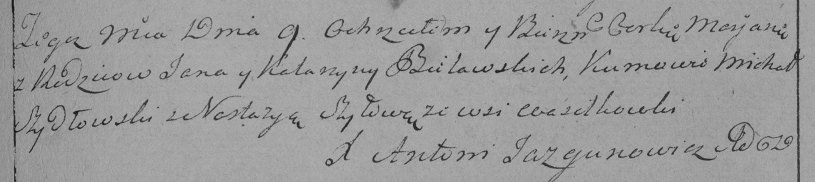 Tegoż Mca Dnia 9. Ochrzciłem y Birzm Corkę Marjanę
z Rodzicow Jana y Katarzyny Buławskich, Kumowie Michał
Szydłowski z Nastazyą Szyłową ze wsi Wasilkowki
X Antoni Jazgunowicz